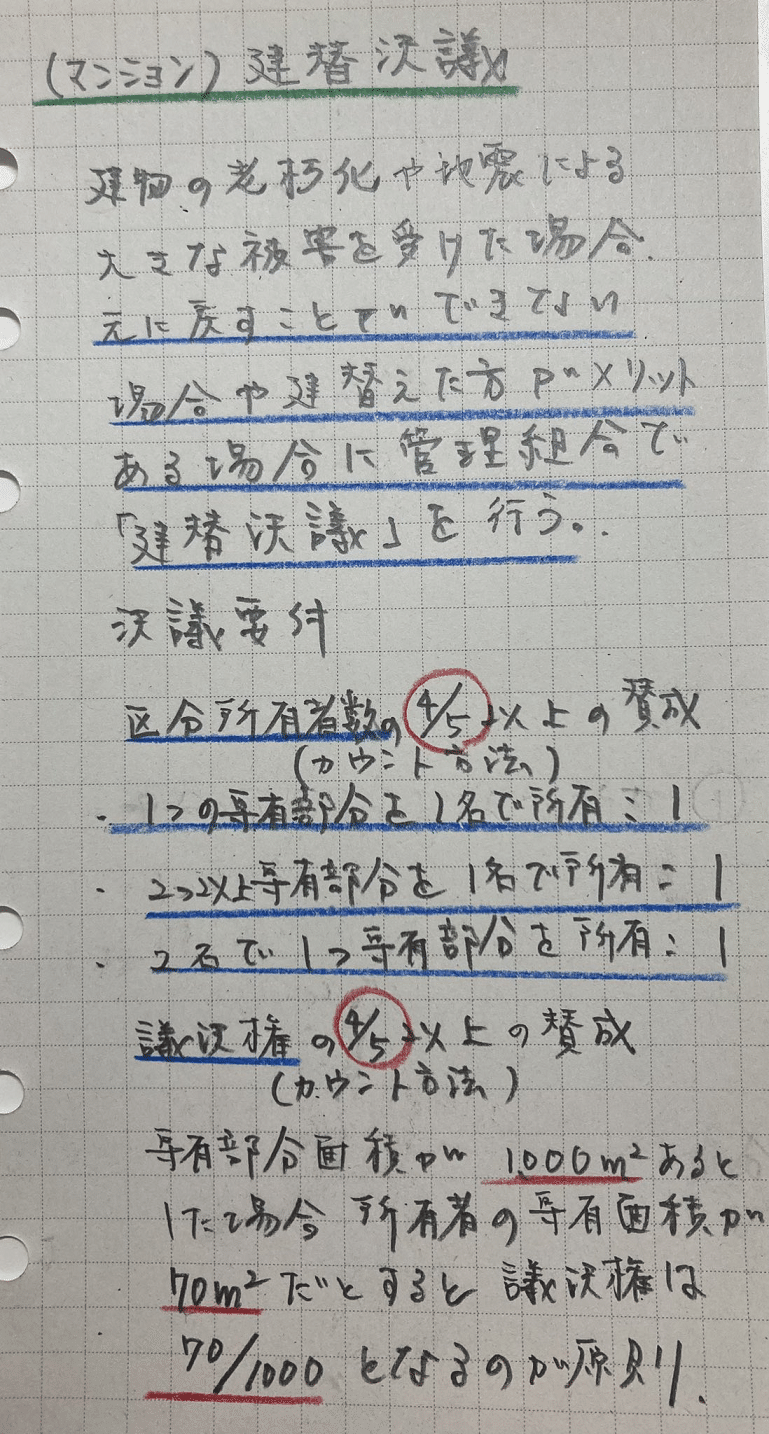 (マンション)建替決議
建物の老朽化や地震による
大きな被害を受けた場合、
元に戻すことができない
場合や建替えた方がメリット
ある場合に管理組合で
「建替決議」を行う。
決議要件
区分所有者数の4/5以上の賛成
(カウント方法)
・1つの専有部分を1名で所有：1
・2つ以上専有部分を1名で所有：1
・2名で1つ専有部分を所有：1
議決権の4/5以上の賛成
(カウント方法)
専有部分面積が1,000m²あると
した場合所有者の専有面積が
70m²だとすると議決権は
70/1000となるのが原則。